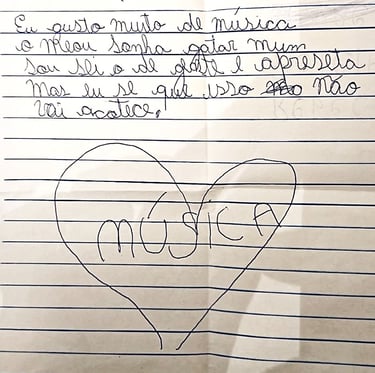 Eu gusto muito de música
o meou sonha gatar mum
sou sei o de gete e apreseta
Mas eu se que isso não
vai acotece.
MÚSÍCA